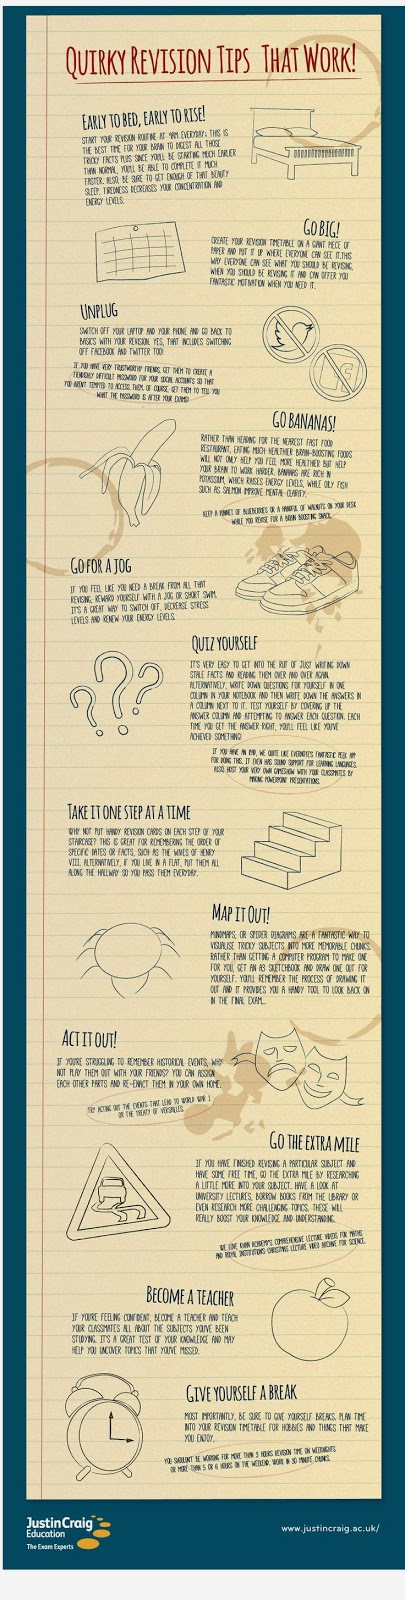 QUIRKY REVISION TIPS THAT WORK!
EARLY TO BED, EARLY TO RISE!
START YOUR REVISION ROUTINE AT 9AM EVERYDAY; THIS IS
THE BEST TIME FOR YOUR BRAIN TO DIGEST ALL THOSE
TRICKY FACTS PLUS SINCE YOU'LL BE STARTING MUCH EARLIER
THAN NORMAL, YOU'LL BE ABLE TO COMPLETE IT MUCH
FASTER. ALSO, BE SURE TO GET ENOUGH OF THAT BEAUTY
SLEEP, TIREDNESS DECREASES YOUR CONCENTRATION AND
ENERGY LEVELS.
GO BIG!
CREATE YOUR REVISION TIMETABLE ON A GIANT PIECE OF
PAPER AND PUT IT UP WHERE EVERYONE CAN SEE IT.THIS
WAY EVERYONE CAN SEE WHAT YOU SHOULD BE REVISING,
WHEN YOU SHOULD BE REVISING IT AND CAN OFFER YOU
FANTASTIC MOTIVATION WHEN YOU NEED IT.
UNPLUG
SWITCH OFF YOUR LAPTOP AND YOUR PHONE AND GO BACK TO
BASICS WITH YOUR REVISION. YES, THAT INCLUDES SWITCHING
OFF FACEBOOK AND TWITTER TOO!
IF YOU HAVE VERY TRUSTWORTHY FRIENDS, GET THEM TO CREATE A
FIENDISHLY DIFFICULT PASSWORD FOR YOUR SOCIAL ACCOUNTS SO THAT
YOU AREN'T TEMPTED TO ACCESS THEM, OF COURSE, GET THEM TO TELL YOU
WHAT THE PASSWORD IS AFTER YOUR EXAMS!
GO BANANAS!
RATHER THAN HEADING FOR THE NEAREST FAST FOOD
RESTAURANT, EATING MUCH HEALTHIER BRAIN-BOOSTING FOODS
WILL NOT ONLY HELP YOU FEEL MORE HEALTHIER BUT HELP
YOUR BRAIN TO WORK HARDER. BANANAS ARE RICH IN
POTASSIUM, WHICH RAISES ENERGY LEVELS, WHILE OILY FISH
SUCH AS SALMON IMPROVE MENTAL CLARITY.
KEEP A PUNNET OF BLUEBERRIES OR A HANDFUL OF WALNUTS ON YOUR DESK
WHILE YOU REVISE FOR A BRAIN BOOSTING SNACK.
GO FOR A JOG
IF YOU FEEL LIKE YOU NEED A BREAK FROM ALL THAT
REVISING, REWARD YOURSELF WITH A JOG OR SHORT SWIM.
IT'S A GREAT WAY TO SWITCH OFF, DECREASE STRESS
LEVELS AND RENEW YOUR ENERGY LEVELS.
QUIZ YOURSELF
IT'S VERY EASY TO GET INTO THE RUT OF JUST WRITING DOWN
STALE FACTS AND READING THEM OVER AND OVER AGAIN.
ALTERNATIVELY, WRITE DOWN QUESTIONS FOR YOURSELF IN ONE
COLUMN IN YOUR NOTEBOOK AND THEN WRITE DOWN THE ANSWERS IN
A COLUMN NEXT TO IT. TEST YOURSELF BY COVERING UP THE
ANSWER COLUMN AND ATTEMPTING TO ANSWER EACH QUESTION. EACH
TIME YOU GET THE ANSWER RIGHT, YOU'LL FEEL LIKE YOU'VE
ACHIEVED SOMETHING!
IF YOU HAVE AN IPAD, WE QUITE LIKE EVERNOTE'S FANTASTIC PEEK APP
FOR DOING THIS. IT EVEN HAS SOUND SUPPORT FOR LEARNING LANGUAGES.
ALSO, HOST YOUR VERY OWN GAMESHOW WITH YOUR CLASSMATES BY
MAKING POWERPOINT PRESENTATIONS.
TAKE IT ONE STEP AT A TIME
WHY NOT PUT HANDY REVISION CARDS ON EACH STEP OF YOUR
STAIRCASE? THIS IS GREAT FOR REMEMBERING THE ORDER OF
SPECIFIC DATES OR FACTS, SUCH AS THE WIVES OF HENRY
VIII. ALTERNATIVELY, IF YOU LIVE IN A FLAT, PUT THEM ALL
ALONG THE HALLWAY SO YOU PASS THEM EVERYDAY.
MAP IT OUT!
MINDMAPS, OR SPIDER DIAGRAMS ARE A FANTASTIC WAY TO
VISUALISE TRICKY SUBJECTS INTO MORE MEMORABLE CHUNKS.
RATHER THAN GETTING A COMPUTER PROGRAM TO MAKE ONE
FOR YOU, GET AN A3 SKETCHBOOK AND DRAW ONE OUT FOR
YOURSELF. YOU'LL REMEMBER THE PROCESS OF DRAWING IT
OUT AND IT PROVIDES YOU A HANDY TOOL TO LOOK BACK ON
IN THE FINAL EXAM...
ACT IT OUT!
IF YOU'RE STRUGGLING TO REMEMBER HISTORICAL EVENTS, WHY
NOT PLAY THEM OUT WITH YOUR FRIENDS? YOU CAN ASSIGN
EACH OTHER PARTS AND RE-ENACT THEM IN YOUR OWN HOME.
TRY ACTING OUT THE EVENTS THAT LEAD TO WORLD WAR 1
OR THE TREATY OF VERSAILLES.
GO THE EXTRA MILE
IF YOU HAVE FINISHED REVISING A PARTICULAR SUBJECT AND
HAVE SOME FREE TIME, GO THE EXTRA MILE BY RESEARCHING
A LITTLE MORE INTO YOUR SUBJECT. HAVE A LOOK AT
UNIVERSITY LECTURES, BORROW BOOKS FROM THE LIBRARY OR
EVEN RESEARCH MORE CHALLENGING TOPICS. THESE WILL
REALLY BOOST YOUR KNOWLEDGE AND UNDERSTANDING.
WE LOVE KHAN ACADEMY'S COMPREHENSIVE LECTURE VIDEOS FOR MATHS
AND ROYAL INSTITUTION'S CHRISTMAS LECTURE VIDEO ARCHIVE FOR SCIENCE.
BECOME A TEACHER
IF YOU'RE FEELING CONFIDENT, BECOME A TEACHER AND TEACH
YOUR CLASSMATES ALL ABOUT THE SUBJECTS YOU'VE BEEN
STUDYING. IT'S A GREAT TEST OF YOUR KNOWLEDGE AND MAY
HELP YOU UNCOVER TOPICS THAT YOU'VE MISSED.
GIVE YOURSELF A BREAK
MOST IMPORTANTLY, BE SURE TO GIVE YOURSELF BREAKS. PLAN TIME
INTO YOUR REVISION TIMETABLE FOR HOBBIES AND THINGS THAT MAKE
YOU ENJOY.
YOU SHOULDN'T BE WORKING FOR MORE THAN 3 HOURS REVISION TIME ON WEEKNIGHTS
OR MORE THAN 5 OR 6 HOURS ON THE WEEKEND. WORK IN 30 MINUTE CHUNKS.
JustinCraig
Education
The Exam Experts
www.justincraig.ac.uk/